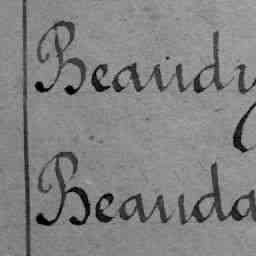 Beaudy
Beauda